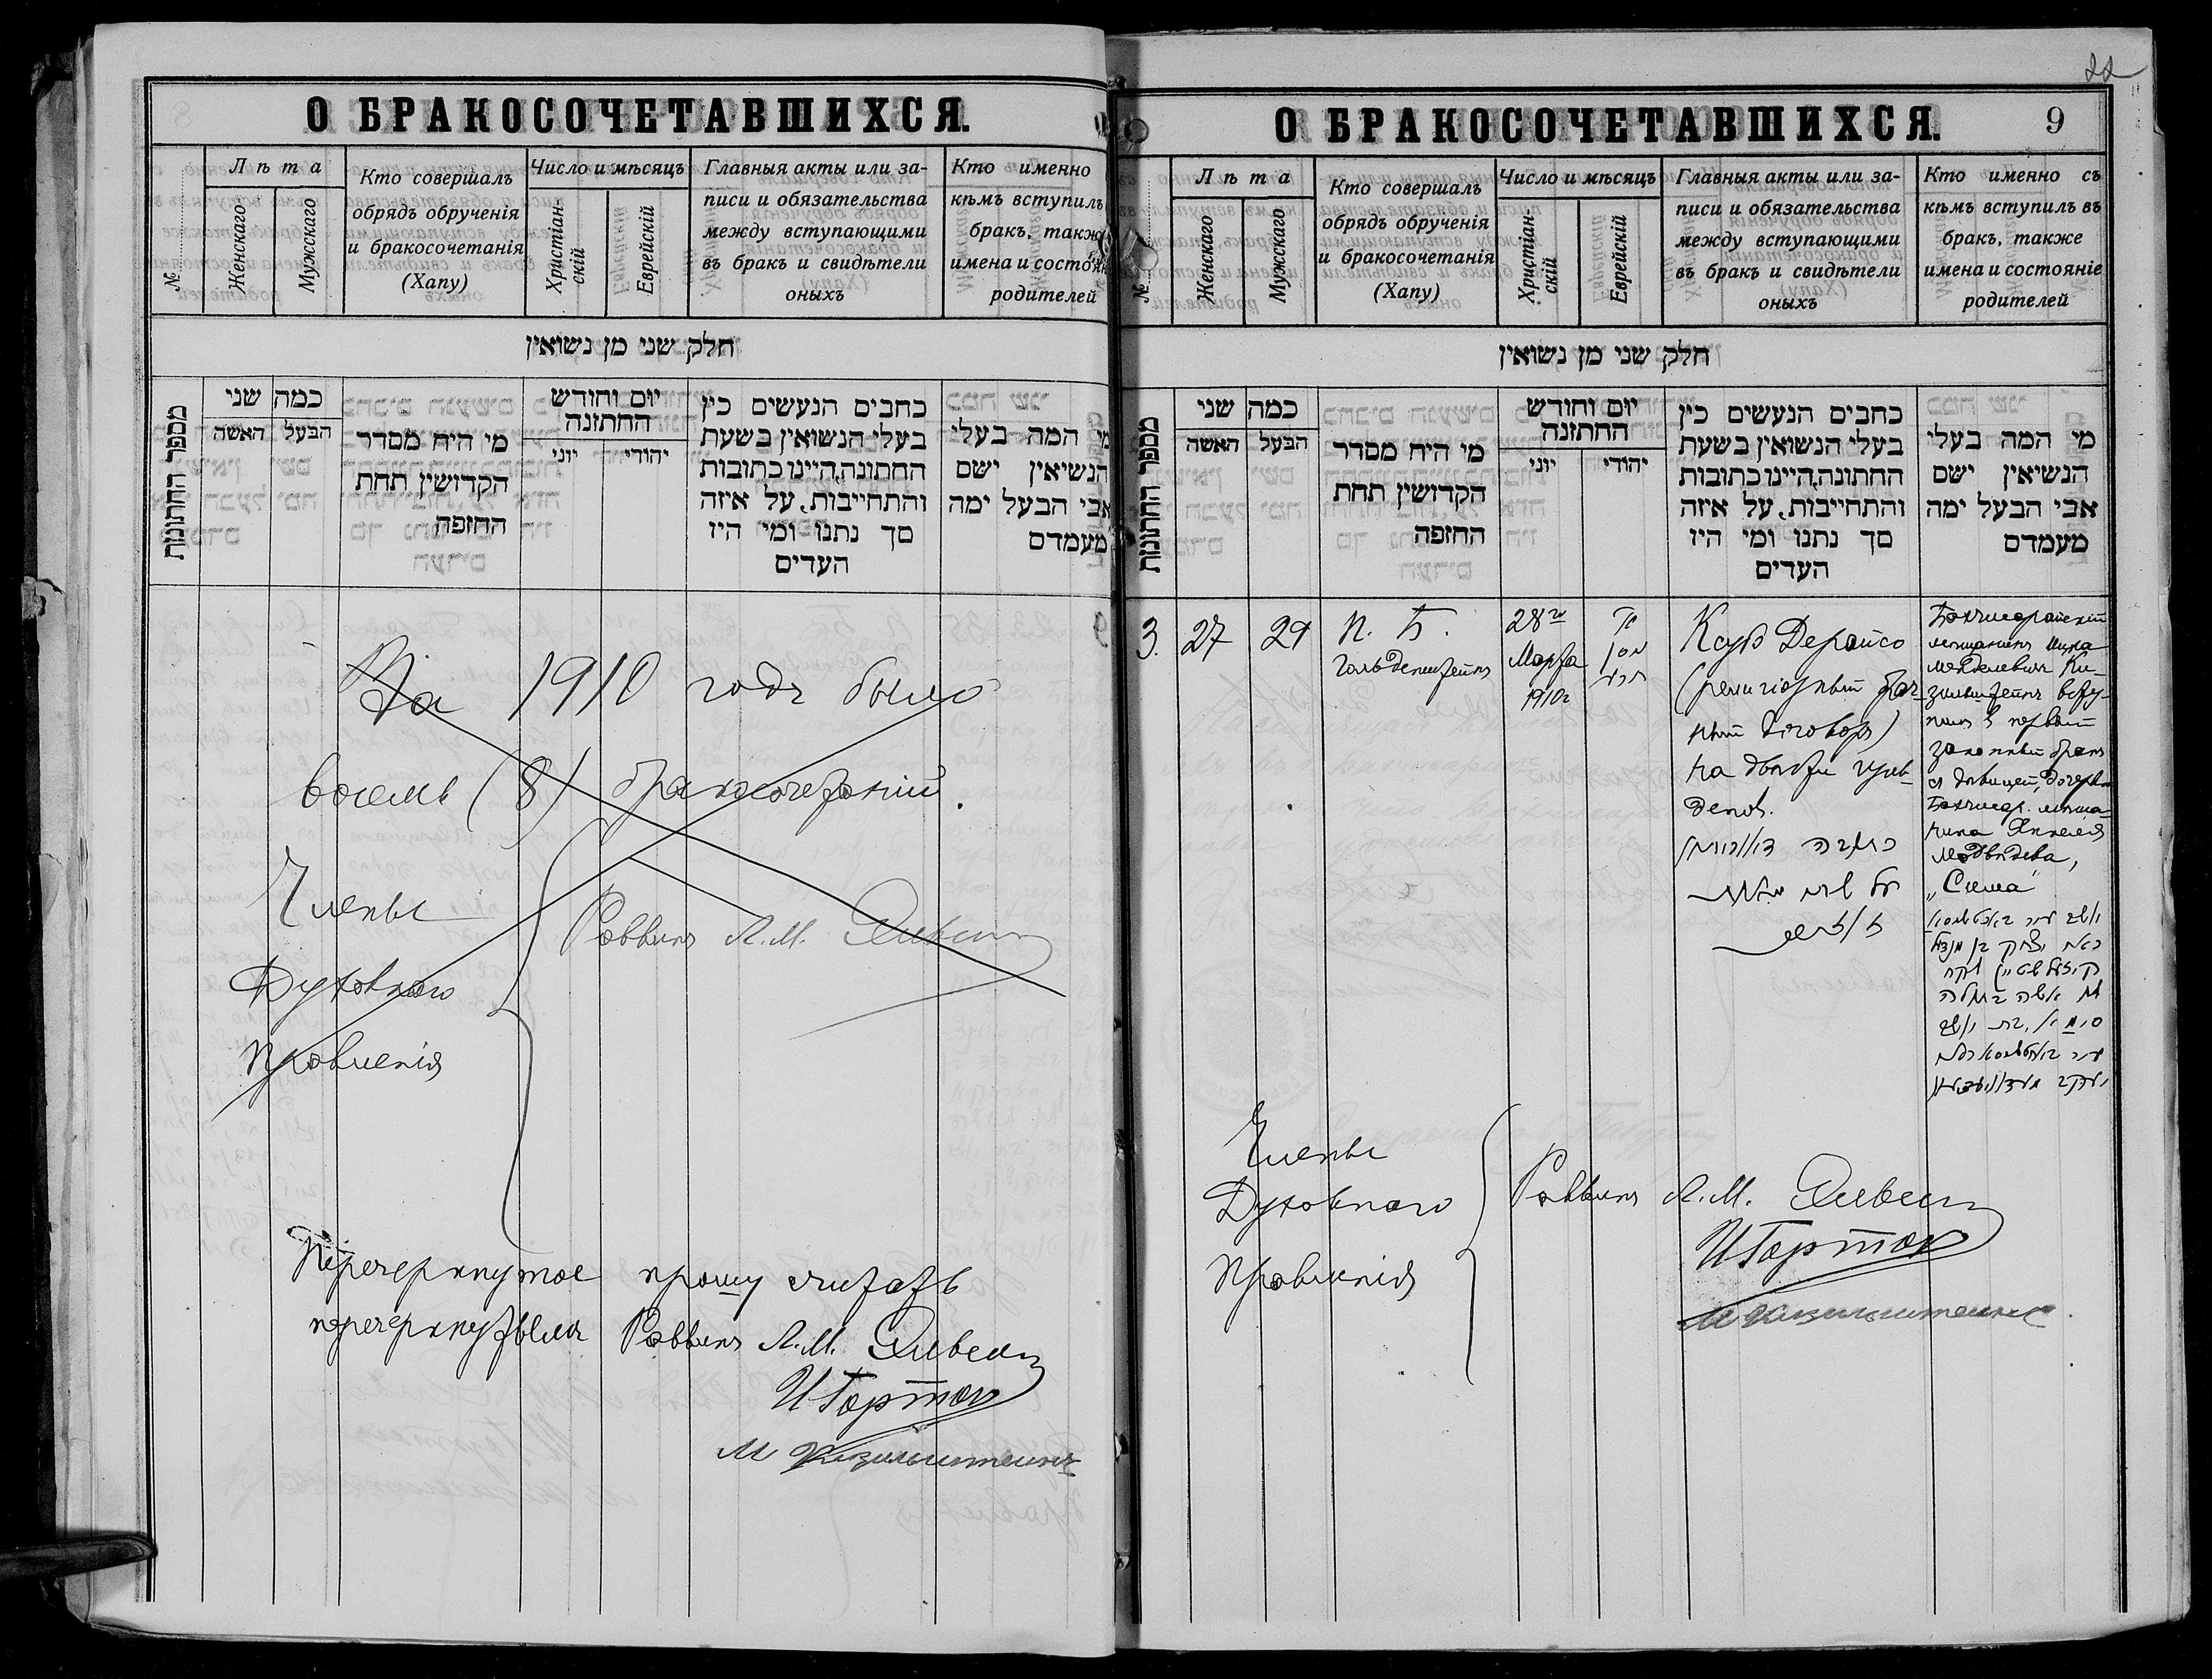 О БРАКОСОЧЕТАВШИХСЯ.
№
Лѣта
Женскаго
Мужскаго
Кто совершалъ
обрядъ обрученія
и бракосочетанія
(Хапу)
Число и мѣсяцъ
Христіан-
скій
Еврейскій
Главныя акты или за-
писи и обязательства
между вступающими
въ бракъ и свидѣтели
оныхъ
Кто именно
кѣмъ вступилъ
бракъ, также
имена и состоян
родителей
חלק שני מן נשואין
מספר החתונות
כמה שני
הבעל
האשה
מי היח מסדר
הקדושין תחת
החופה
יום וחודש
החתונה
יהודי
יוני
כחבים הנעשים כין
בעלי הנשואין בשעת
החתונה, היינו כתובות
והתחייבות, על איזה
סך נתנו ומי היו
העדים
מי המה בעלי
הנשיאין ישם
אבי הבעל ימה
מעמדם
За 1910 годъ было
восемь (8) бракосочетаній.
Члены
Духовнаго
Правленія
Раввинъ Л.М.
Перечеркнутое прошу считать
перечеркнутымъ Раввинъ Л.М.
М Кизильштейнъ
22
О БРАКОСОЧЕТАВШИХСЯ.
9
№
Лѣта
Женскаго
Мужскаго
Кто совершалъ
обрядъ обрученія
и бракосочетанія
(Хапу)
Число и мѣсяцъ
Христіан-
скій
Еврейскій
Главныя акты или за-
писи и обязательства
между вступающими
въ бракъ и свидѣтели
оныхъ
Кто именно съ
кѣмъ вступилъ въ
бракъ, также
имена и состояніе
родителей
חלק שני מן נשואין
מספר החתונות
כמה שני
הבעל
האשה
מי היח מסדר
הקדושין תחת
החופה
יום וחודש
החתונה
יהודי
יוני
כחבים הנעשים כין
בעלי הנשואין בשעת
החתונה, היינו כתובות
והתחייבות, על איזה
סך נתנו ומי היו
העדים
מי המה בעלי
הנשיאין ישם
אבי הבעל ימה
מעמדם
3.
27
29
П. Б.
Гольденштейнъ
28го
Марта
1910г
(религіозный брач-
ный договоръ)
на двѣсти гуль-
денов.
Бахчисарайскій
мѣщанинъ
Менделевичъ Ки-
зильштейнъ всту-
пилъ в первый
законный бракъ
съ дѣвицей, дочерью
Бахчисар. мѣща-
нина Янкеля
Медвѣдева,
„Сима"
Члены
Духовнаго
Правленія
Раввинъ Л.М.
М Кизильштейнъ